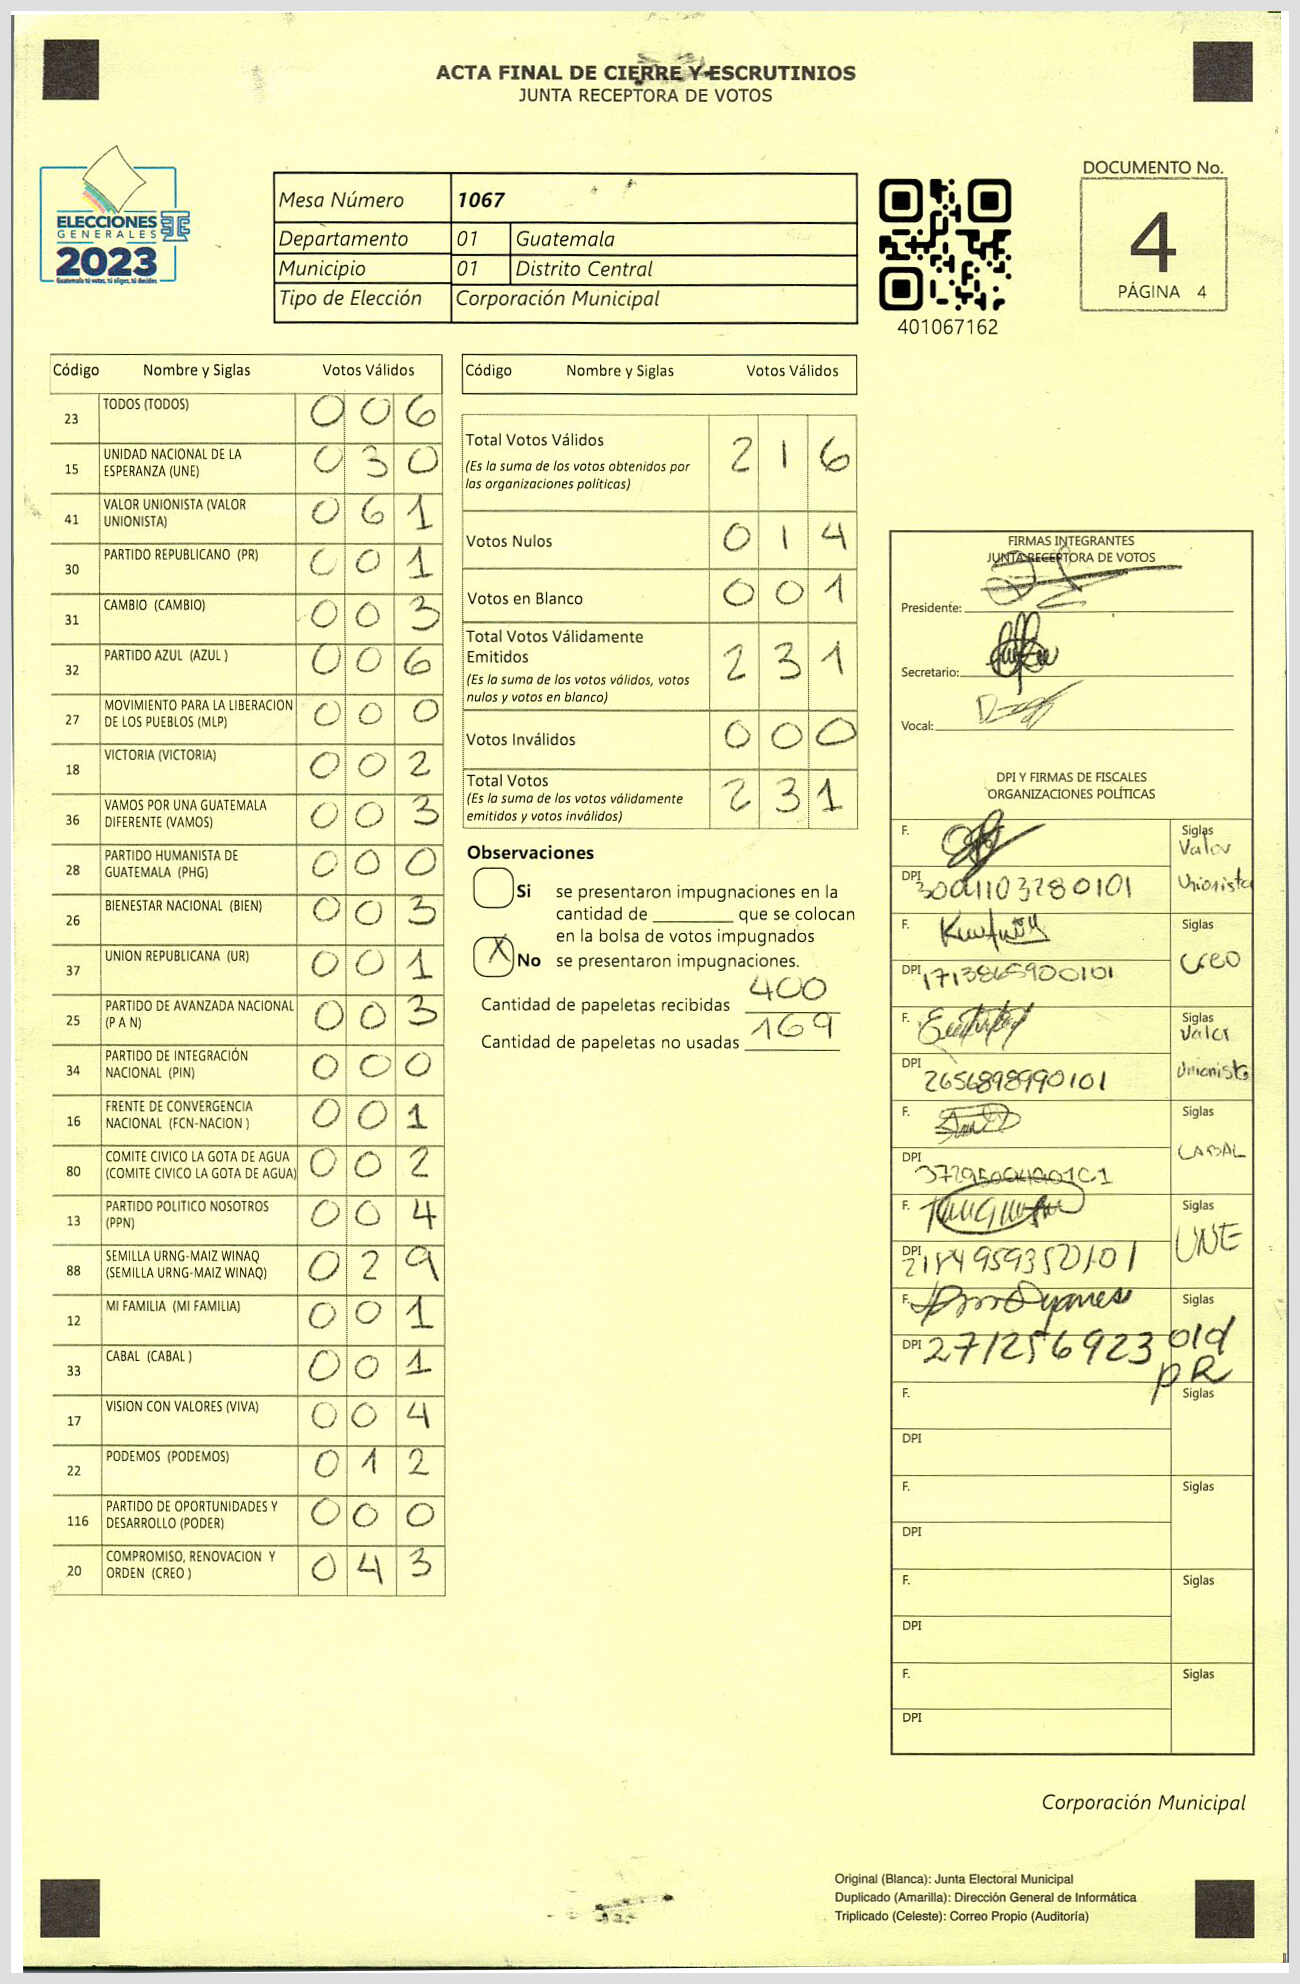 ACTA FINAL DE CIERRE Y ESCRUTINIOS
JUNTA RECEPTORA DE VOTOS
ELECCIONES
GENERALES
2023
Guatemala tú votas, tú eliges, tú decides
Mesa Número 1067
Departamento 01 Guatemala
Municipio 01 Distrito Central
Tipo de Elección Corporación Municipal
401067162
DOCUMENTO No.
4
PÁGINA 4
Código Nombre y Siglas Votos Válidos
23 TODOS (TODOS) 0 0 6
15 UNIDAD NACIONAL DE LA ESPERANZA (UNE) 0 3 0
41 VALOR UNIONISTA (VALOR UNIONISTA) 0 6 1
30 PARTIDO REPUBLICANO (PR) 0 0 1
31 CAMBIO (CAMBIO) 0 0 3
32 PARTIDO AZUL (AZUL ) 0 0 6
27 MOVIMIENTO PARA LA LIBERACION DE LOS PUEBLOS (MLP) 0 0 0
18 VICTORIA (VICTORIA) 0 0 2
36 VAMOS POR UNA GUATEMALA DIFERENTE (VAMOS) 0 0 3
28 PARTIDO HUMANISTA DE GUATEMALA (PHG) 0 0 0
26 BIENESTAR NACIONAL (BIEN) 0 0 3
37 UNION REPUBLICANA (UR) 0 0 1
25 PARTIDO DE AVANZADA NACIONAL (P A N) 0 0 3
34 PARTIDO DE INTEGRACIÓN NACIONAL (PIN) 0 0 0
16 FRENTE DE CONVERGENCIA NACIONAL (FCN-NACION ) 0 0 1
80 COMITE CIVICO LA GOTA DE AGUA (COMITE CIVICO LA GOTA DE AGUA) 0 0 2
13 PARTIDO POLITICO NOSOTROS (PPN) 0 0 4
88 SEMILLA URNG-MAIZ WINAQ (SEMILLA URNG-MAIZ WINAQ) 0 2 9
12 MI FAMILIA (MI FAMILIA) 0 0 1
33 CABAL (CABAL ) 0 0 1
17 VISION CON VALORES (VIVA) 0 0 4
22 PODEMOS (PODEMOS) 0 1 2
116 PARTIDO DE OPORTUNIDADES Y DESARROLLO (PODER) 0 0 0
20 COMPROMISO, RENOVACION Y ORDEN (CREO ) 0 4 3
Código Nombre y Siglas Votos Válidos
Total Votos Válidos 2 1 6
(Es la suma de los votos obtenidos por
las organizaciones políticas)
Votos Nulos 0 1 4
Votos en Blanco 0 0 1
Total Votos Válidamente
Emitidos 2 3 1
(Es la suma de los votos válidos, votos
nulos y votos en blanco)
Votos Inválidos 0 0 0
Total Votos 2 3 1
(Es la suma de los votos válidamente
emitidos y votos inválidos)
Observaciones
Si se presentaron impugnaciones en la
cantidad de ________ que se colocan
en la bolsa de votos impugnados
X No se presentaron impugnaciones.
Cantidad de papeletas recibidas 400
Cantidad de papeletas no usadas 169
FIRMAS INTEGRANTES
JUNTA RECEPTORA DE VOTOS
Presidente:
Secretario:
Vocal:
DPI Y FIRMAS DE FISCALES
ORGANIZACIONES POLÍTICAS
F. Siglas
Valor
DPI Unionista
F. Siglas
DPI 1713865900101 Creo
F. Siglas
Valor
DPI 2656898990101 Unionista
F. Siglas
DPI CABAL
F. Siglas
DPI UNE
F. Siglas
DPI 271256923 010
PR
F. Siglas
DPI
F. Siglas
DPI
F. Siglas
DPI
F. Siglas
DPI
Corporación Municipal
Original (Blanca): Junta Electoral Municipal
Duplicado (Amarilla): Dirección General de Informática
Triplicado (Celeste): Correo Propio (Auditoría)